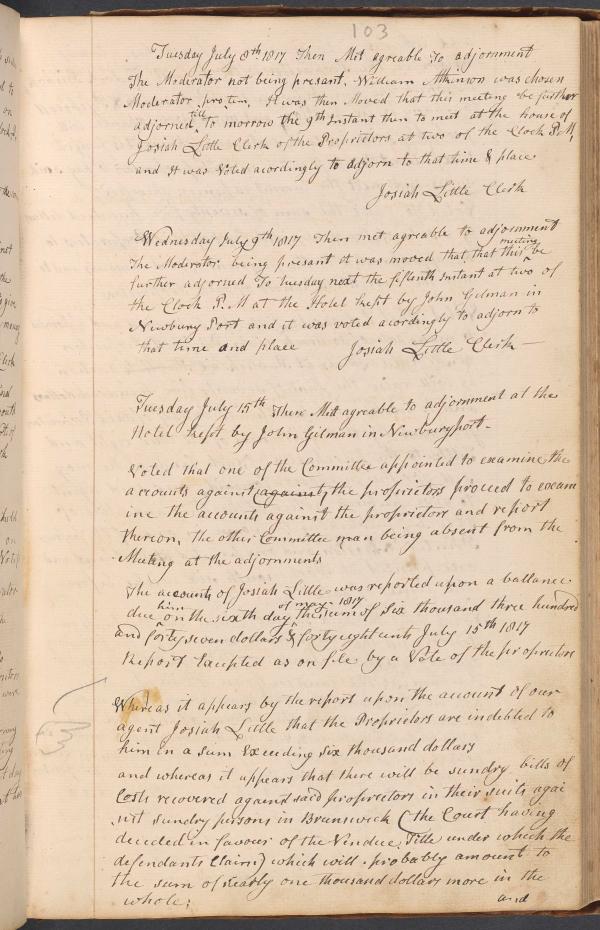 103
Tuesday July 8th 1817 Then Mit agreable to adjornment
The Moderator not being presant, William Atkinson was chosen
Moderator protem, It was then Moved that this meeting be further
adjorned till to morrow the 9th Instant then to meet at the house of
Josiah Little Clerk of the Proprietors at two of the Clock P.M,
and It was Voted acordingly to adjorn to that time & place
Josiah Little Clerk
Wednesday July 9th 1817 Then met agreable to adjornment
The Moderator being presant it was moved that that this meeting be
further adjorned To tuesday next the fifteenth Instant at two of
the Clock P.M at the Hotel kept by John Gilman in
Newbury Port and it was voted acordingly to adjorn to
that time and place Josiah Little Clerk
Tuesday July 15th Then Mitt agreable to adjornment at the
Hotel kept by John Gilman in Newburyport-
Voted that one of the Committee appointed to examine the
accounts against (against) the proprietors proceed to exam
ine the accounts against the proprietors and report
thereon, the other Committee man being absent from the
Meeting at the adjornments
The accounts of Josiah Little was reported upon a ballance
due him on the sixth day of may 1817 the sum of six thousand three hundred
and forty seven dollars & forty eight cents July 15th 1817
Report Excepted as on file by a Vote of the proprietors
Whereas it appears by the report upon the account of our
agent Josiah Little that the Proprietors are indebted to
him in a sum Exceeding six thousand dollars
and whereas it appears that there will be sundry bills of
Costs recovered against said proprietors in their suits agai
nst sundry persons in Brunswick (the Court having
decided in favour of the Vendue Title under which the
defendants Claim) which will probably amount to
the sum of nearly one thousand dollars more in the
whole;
and